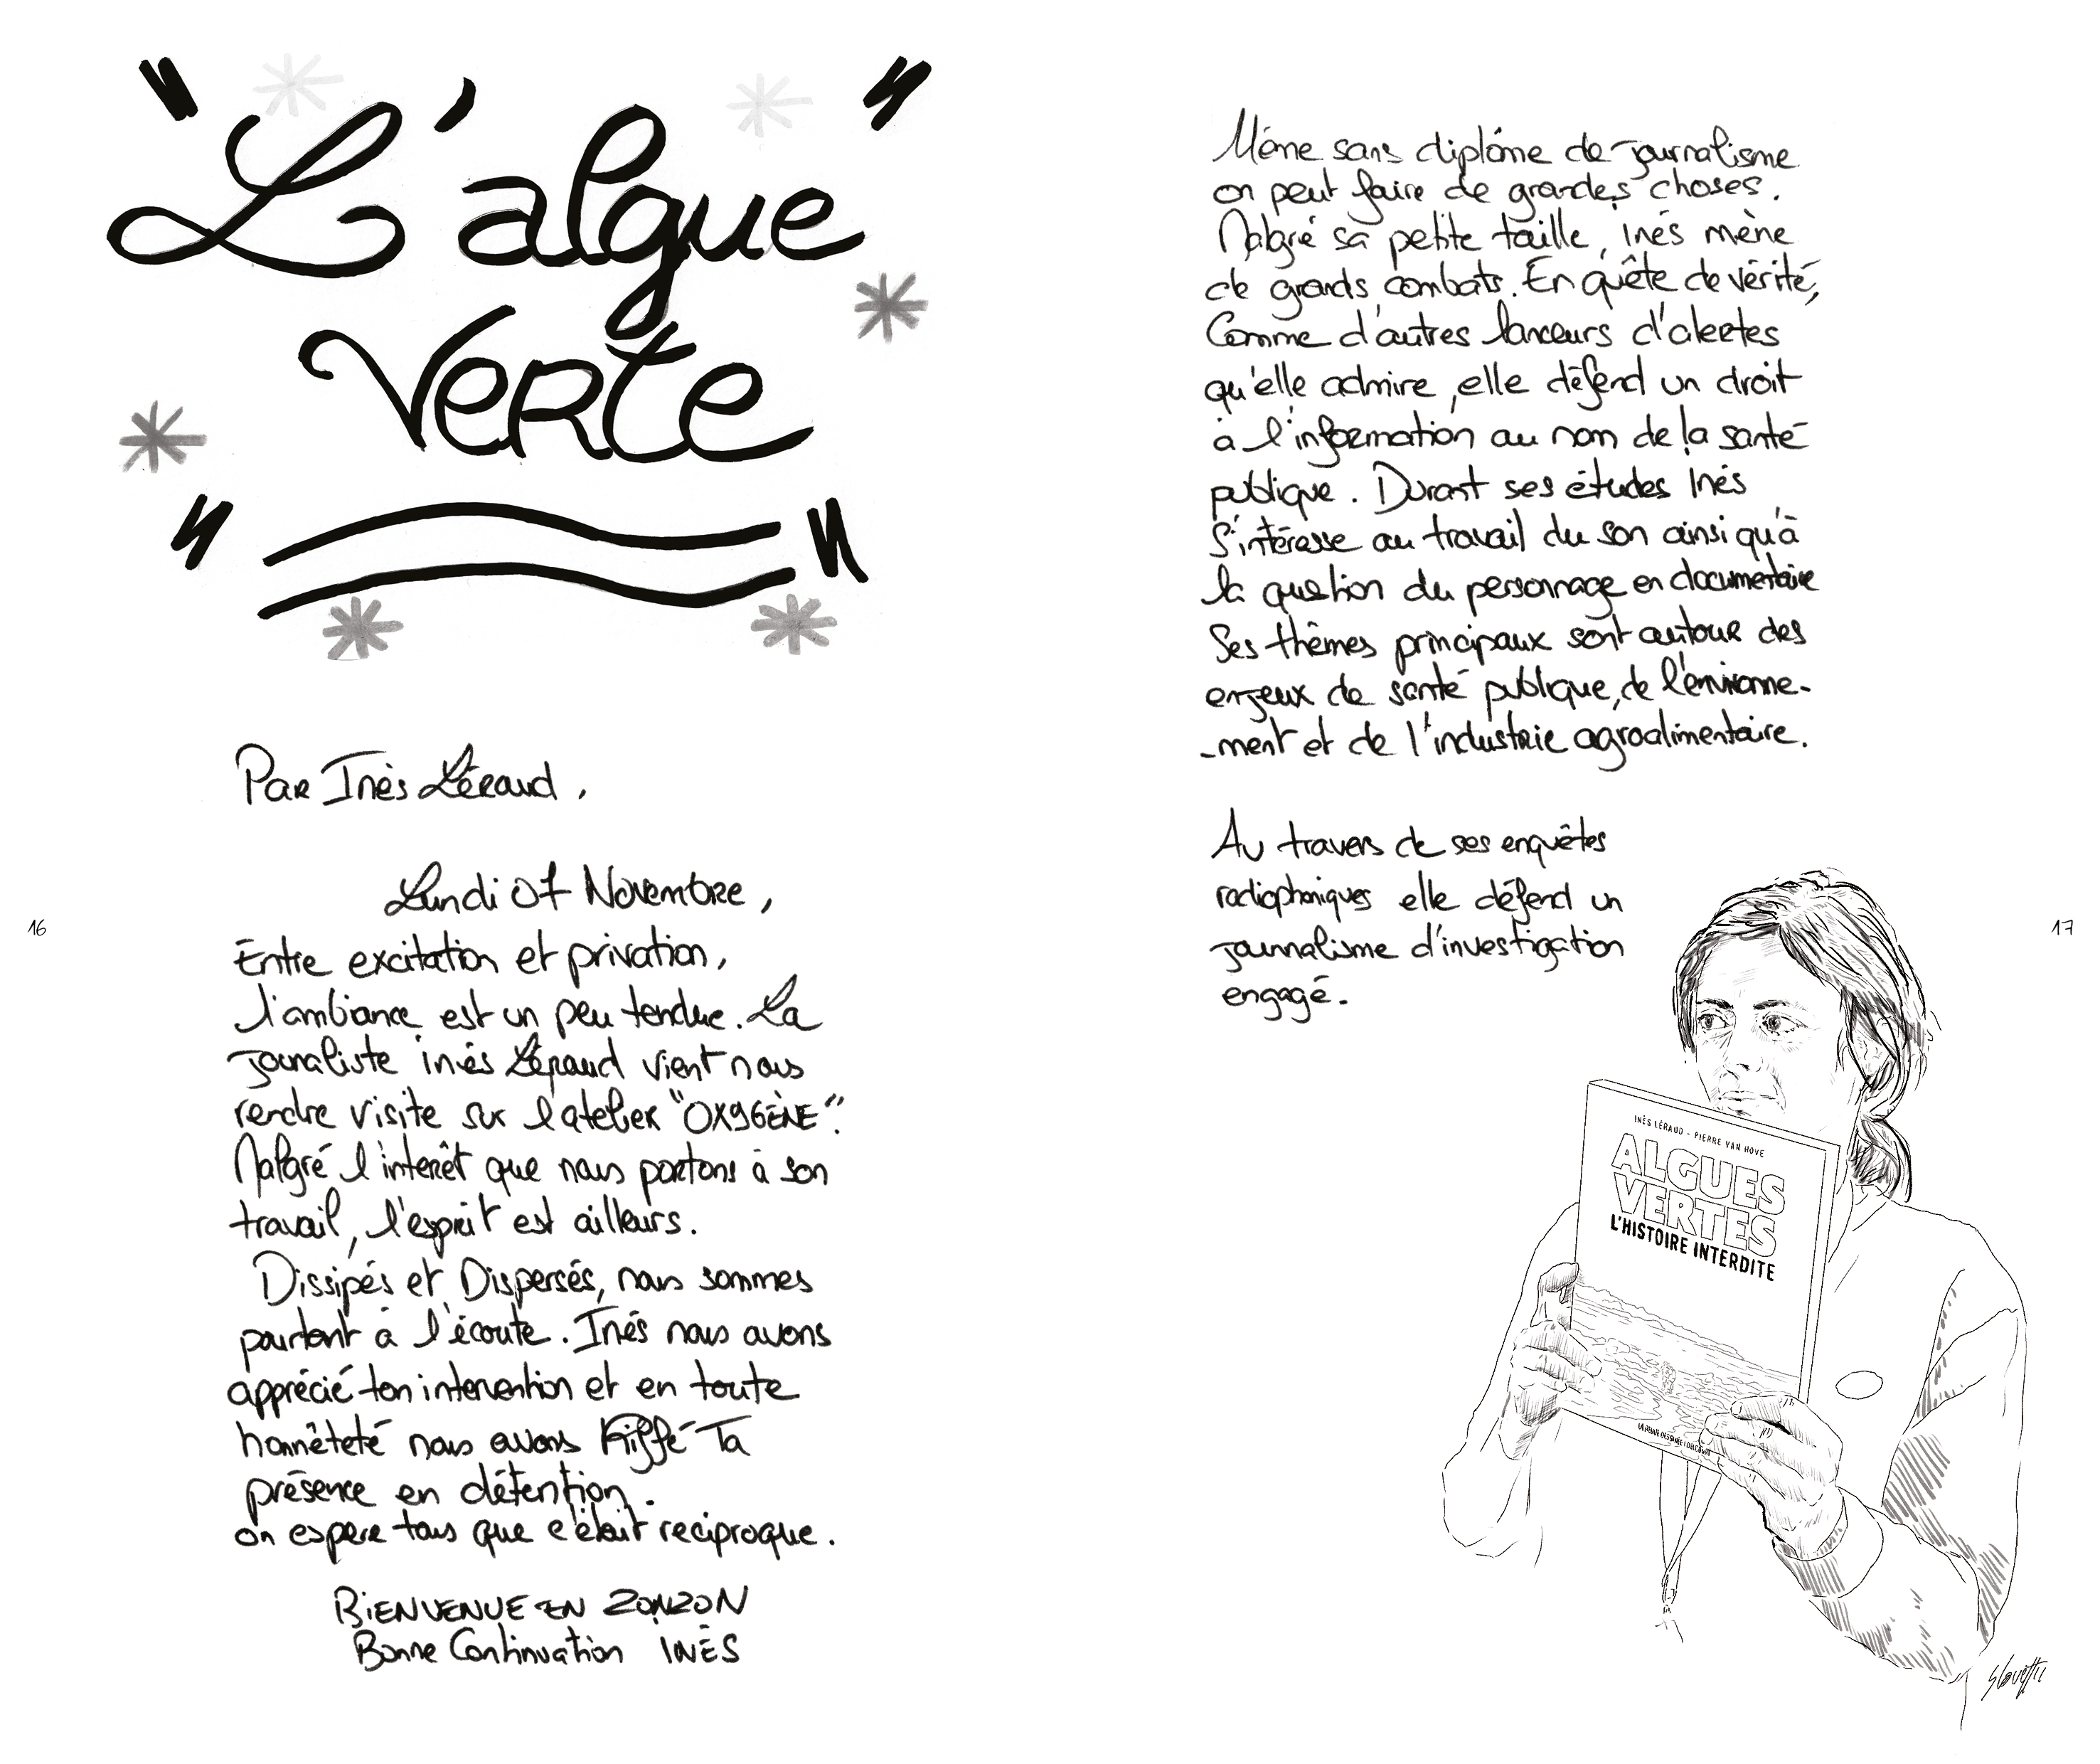 "L'algue"
VeRte
Par Inès Léraud,
Lundi 07 Novembre,
Entre excitation et privation,
l'ambiance est un peu tendue. La
journaliste inès Léraud vient nous
rendre visite sur l'atelier "OXYGÈNE".
Malgré l'interêt que nous portons à son
travail, l'esprit est ailleurs.
Dissipés et Dispersés, nous sommes
pourtant à l'écoute. Inés nous avons
apprécié ton intervention et en toute
honnêteté nous avons Kiffé Ta
présence en détention.
on espere tous que c'était reciproque.
BIENVENUE EN ZONZON
Bonne Continuation INÈS
16
Même sans diplôme de journalisme
on peut faire de grandes choses.
Malgré sa petite taille, inés mène
de grands combats. En quête de vérité,
Comme d'autres lanceurs d'alertes
qu'elle admire, elle défend un droit
à l'information au nom de la santé
publique. Durant ses études Inés
S'intéresse au travail du son ainsi qu'à
la question du personnage en documentaire
Ses thèmes principaux sont autour des
enjeux de santé publique, de l'environne-
-ment et de l'industrie agroalimentaire.
Au travers de ses enquêtes
radiophoniques elle défend un
journalisme d'investigation
engagé.
17
INÈS LÉRAUD - PIERRE VAN HOVE
ALGUES
VERTES
L'HISTOIRE INTERDITE